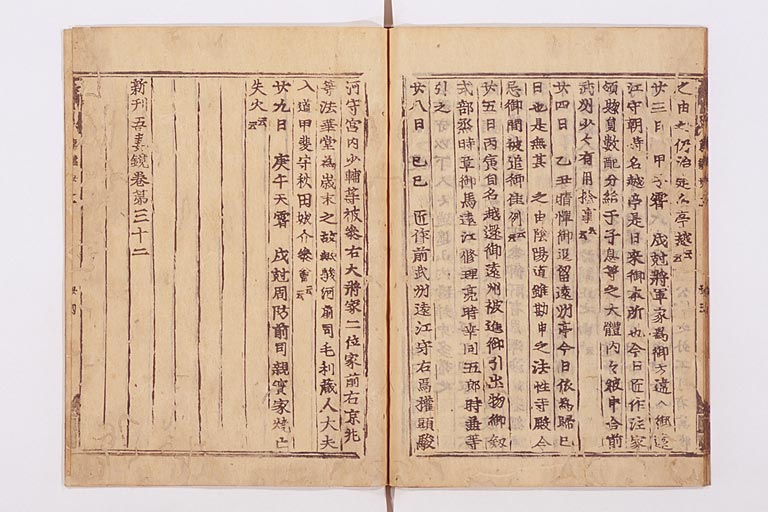 之由也仍治定亭越云云
廿三日甲子霽 戌尅將軍家爲御方違入御遠
江守朝時名越亭是日來御本所也今日匠作注家
領賦員數配分給于子息等之大體内々被申合前
武州少々有用捨事云云
廿四日 乙丑晴憚御逗留遠州亭今日依爲歸忌
日也是無其 之由陰陽道雖勘申之法性寺殿令
忌御間被追御佳例云云
廿五日丙寅自名越還御遠州被進御引出物御釼
式部丞時章御馬遠江修理亮時幸同五郎時兼等
引之
廿八日 己巳 匠作前武州遠江守右馬權頭駿
河守宮内少輔等被參右大將家二位家前右京兆
等法華堂爲歳末之故歟駿河前司毛利藏人大夫
入道甲斐守秋田城介參會云云
廿九日 庚午天霽 戌尅周防前司親實家燒亡
失火云云
新刊吾妻鏡卷第三十二